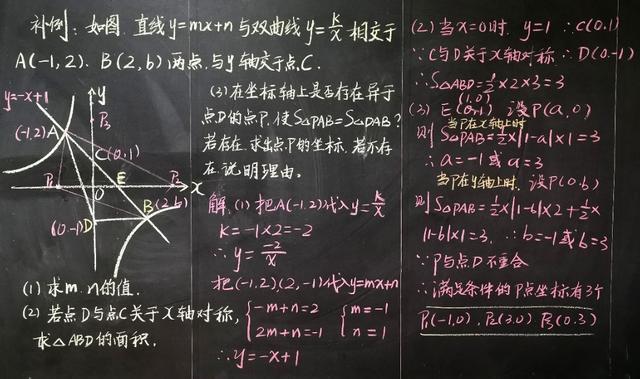 补例：如图，直线y=mx+n与双曲线y=k/x相交于
A(-1,2)、B(2,b)两点，与y轴交于点C.
y=-x+1
y
P3
(-1,2)
A
C(0,1)
P1
O
E
P2
x
B(2,b)
(0,-1)D
(1) 求m、n的值.
(2) 若点D与点C关于x轴对称，
求△ABD的面积.
(3) 在坐标轴上是否存在异于
点D的点P，使S△PAB=S△DAB?
若存在，求出点P的坐标，若不存
在，说明理由。
解：(1) 把A(-1,2)代入y=k/x
k=-1×2=-2
∴y=-2/x
把(-1,2)(2,-1)代入y=mx+n
{-m+n=2 {m=-1
2m+n=-1 n=1
∴y=-x+1
(2) 当x=0时，y=1 ∴C(0,1)
∵C与D关于x轴对称 ∴D(0,-1)
∴S△ABD=1/2×2×3=3
(3) E(1,0) 设P(a,0)
当P在x轴上时
则S△PAB=1/2×|1-a|×1=3
∴a=-1或a=3
当P在y轴上时，设P(0,b)
则S△PAB=1/2×|1-b|×2+1/2×
|1-b|×1=3，∴b=-1或b=3
∵P与点D不重合
∴满足条件的P点坐标有3个
P1(-1,0)，P2(3,0) P3(0,3)